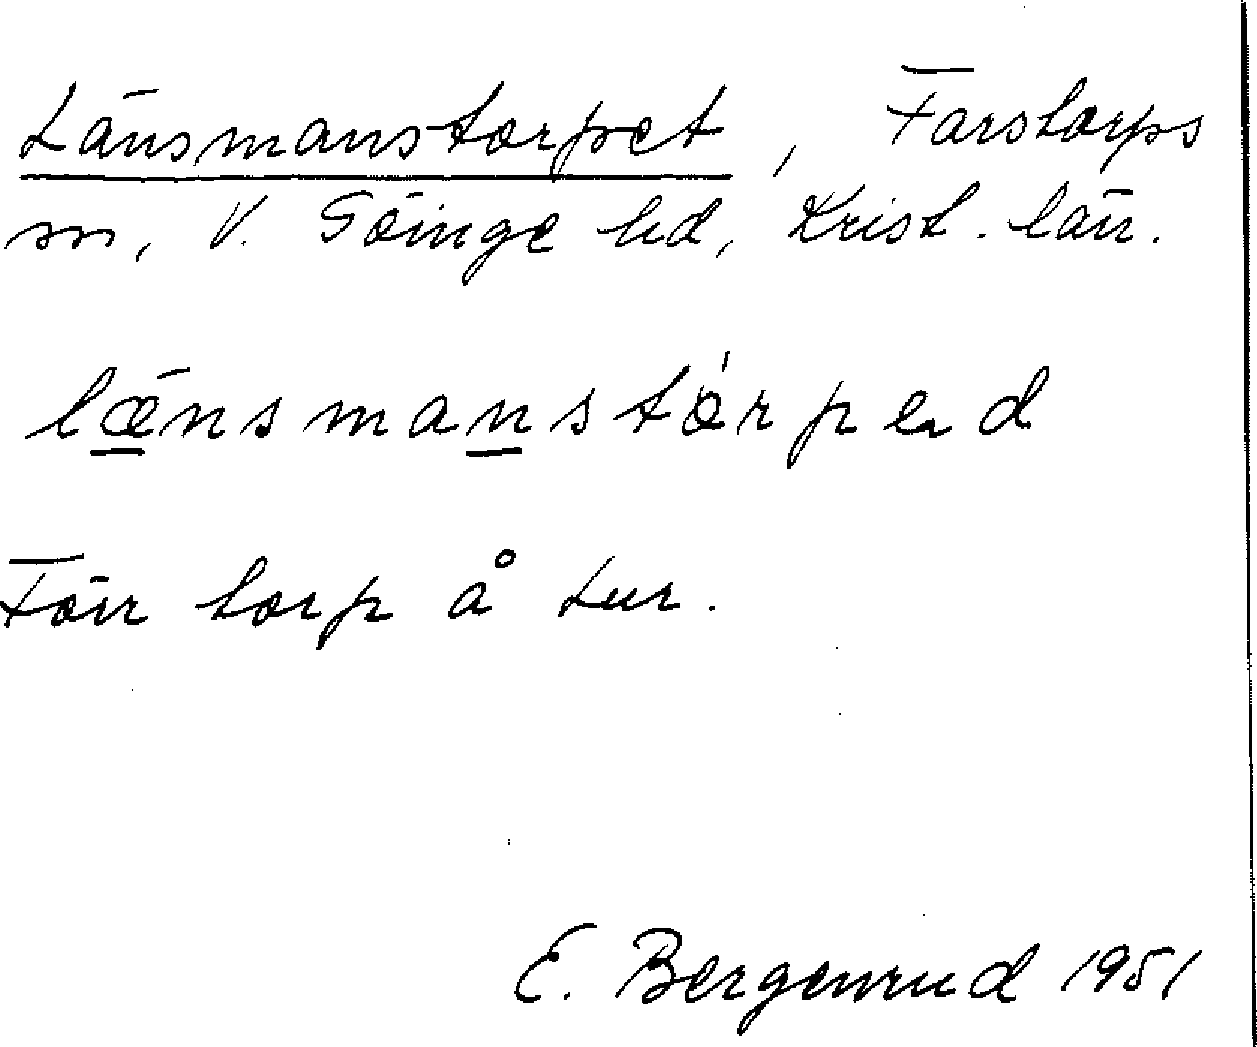 Länsmanstorpet, Farstorps
sn, V. Göinge hd, Krist. län.
længsmanstorped
Förr torp å Lur.
E. Bergenrud 1951